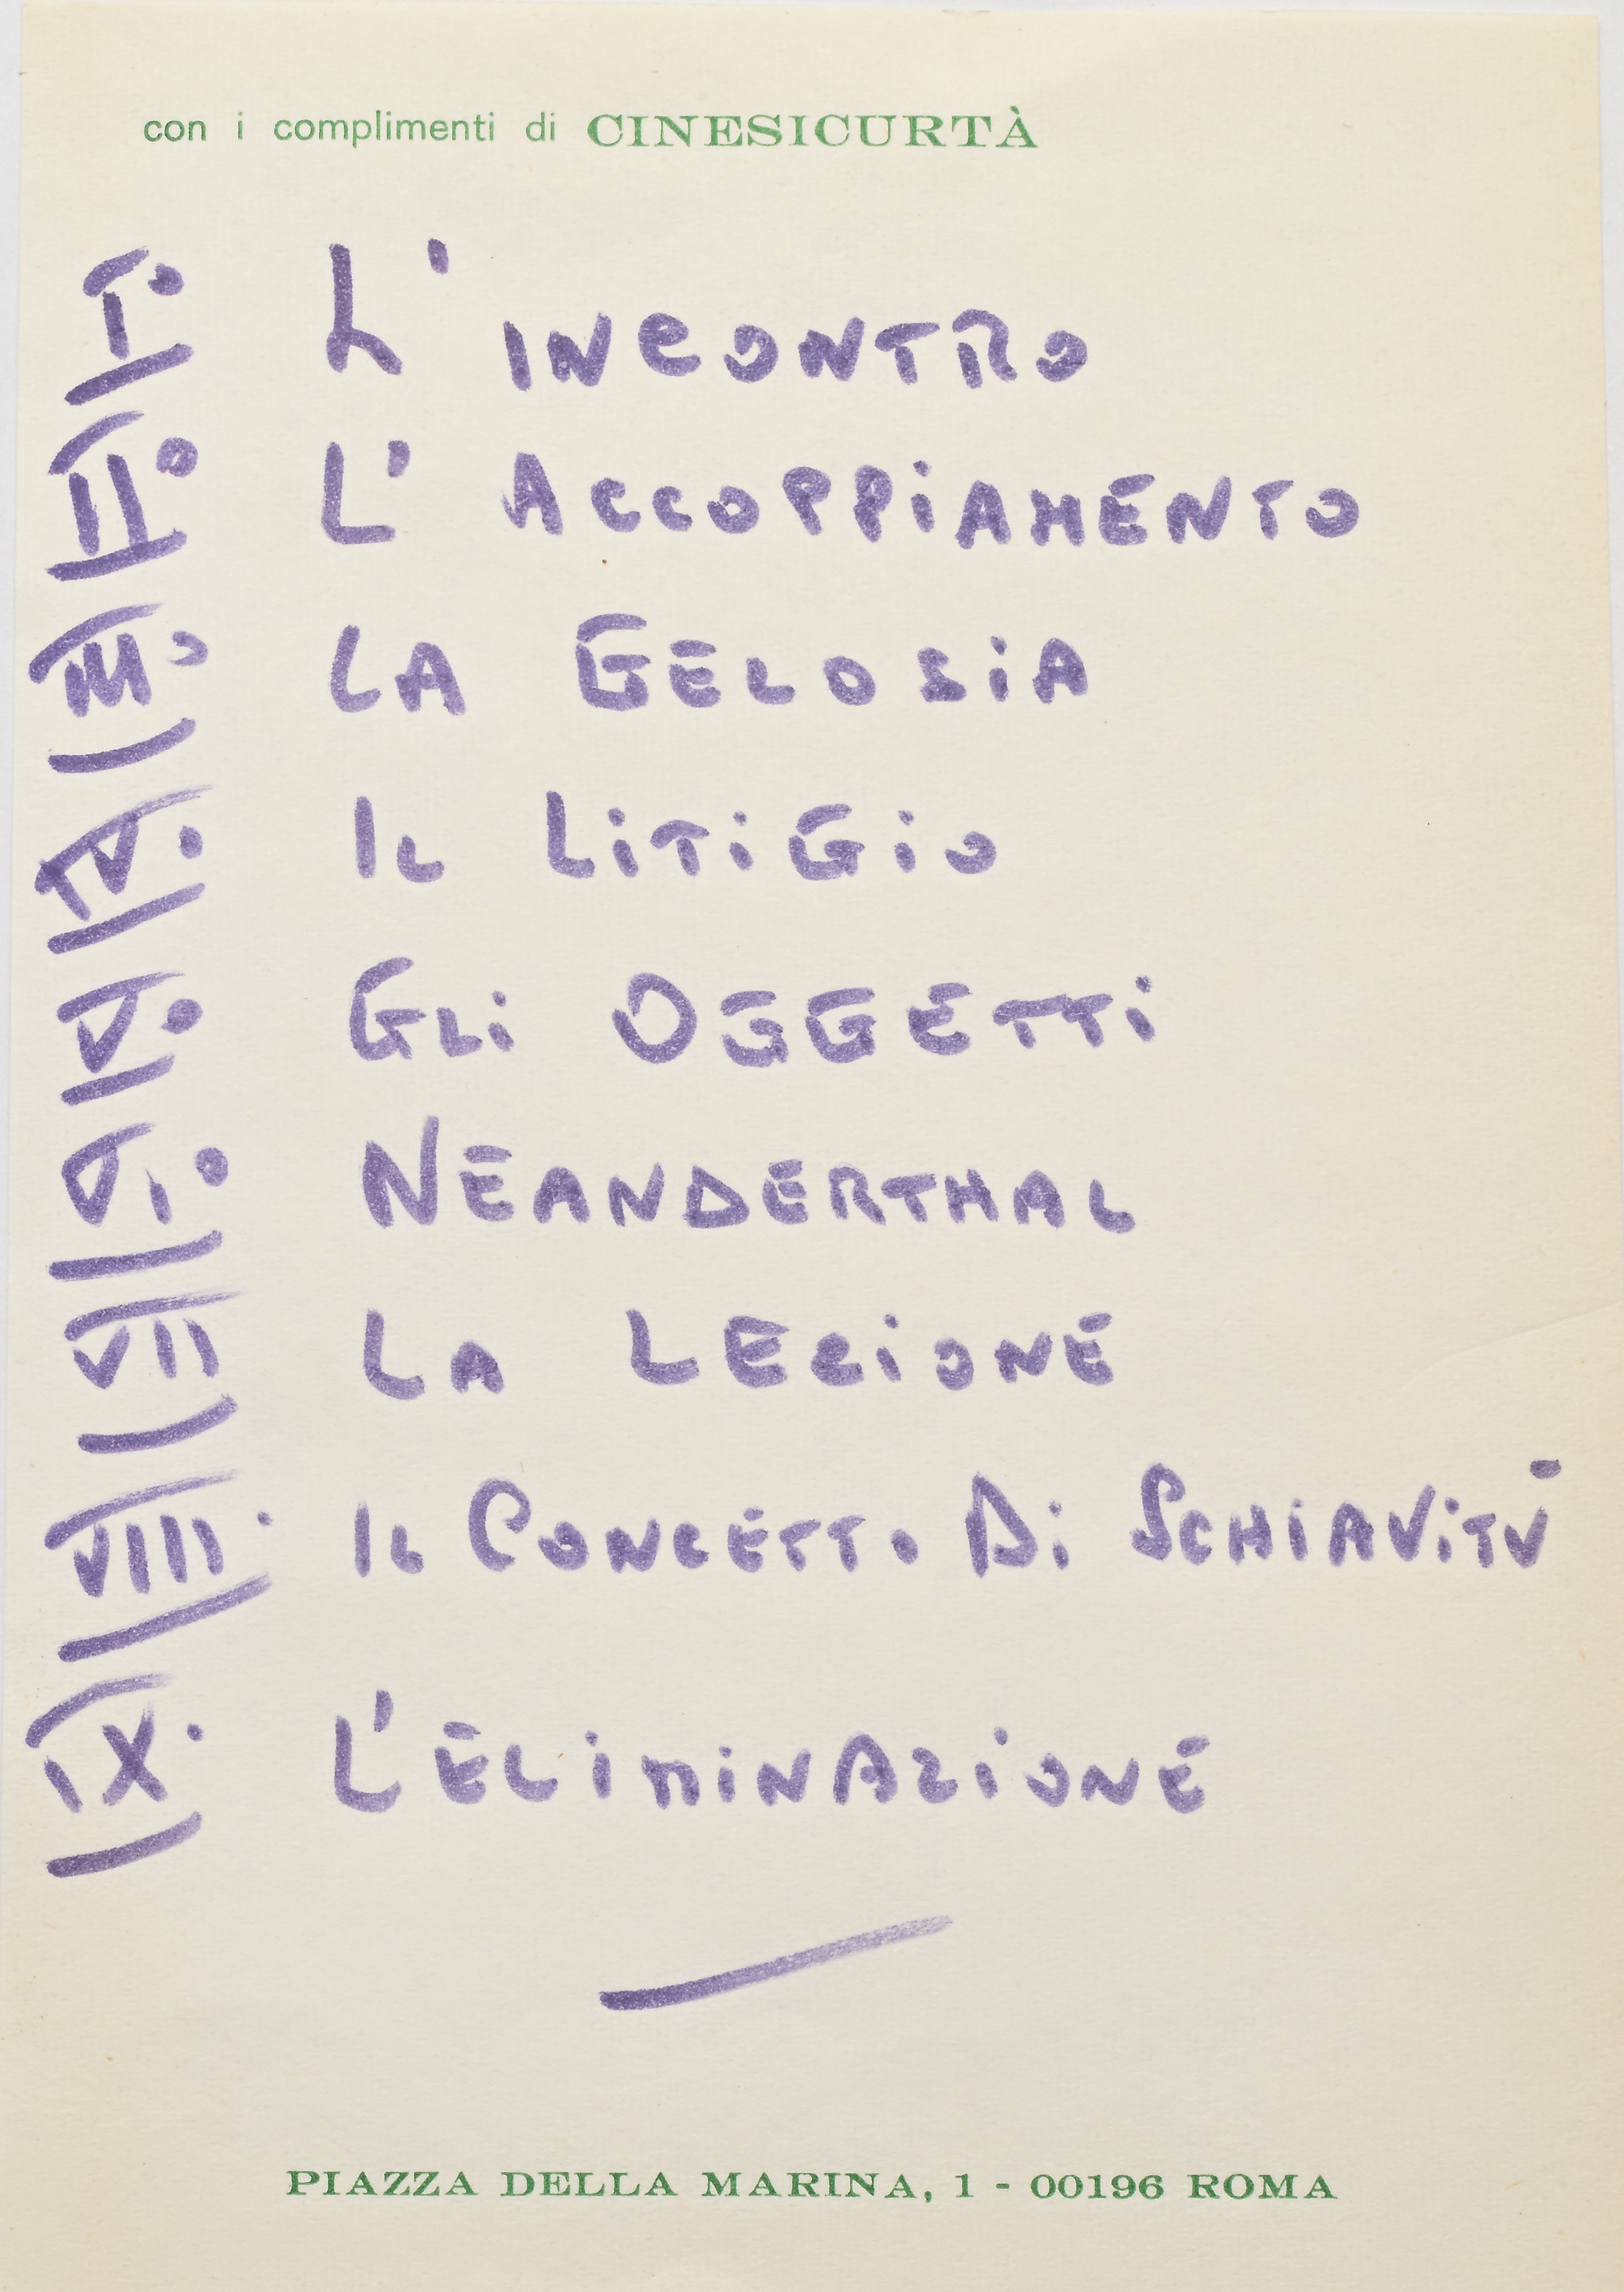 con i complimenti di CINESICURTÀ
I° L'INCONTRO
II° L'ACCOPPIAMENTO
III° LA GELOSIA
IV° IL LITIGIO
V° GLI OGGETTI
VI° NEANDERTHAL
VII LA LEZIONE
VIIII° IL CONCETTO DI SCHIAVITÙ
IX° L'ELIMINAZIONE
PIAZZA DELLA MARINA, 1 - 00196 ROMA